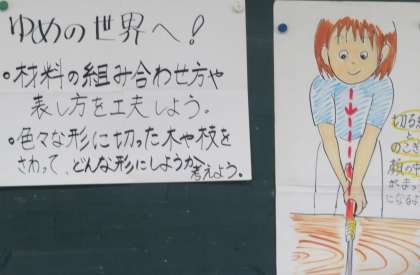 ゆめの世界へ!
•材料の組み合わせ方や
表し方を工夫しよう。
•色々な形に切った木や枝を
さわって、どんな形にしようか考えよう。
切る
のこぎ
顔の中
がま
になるよ